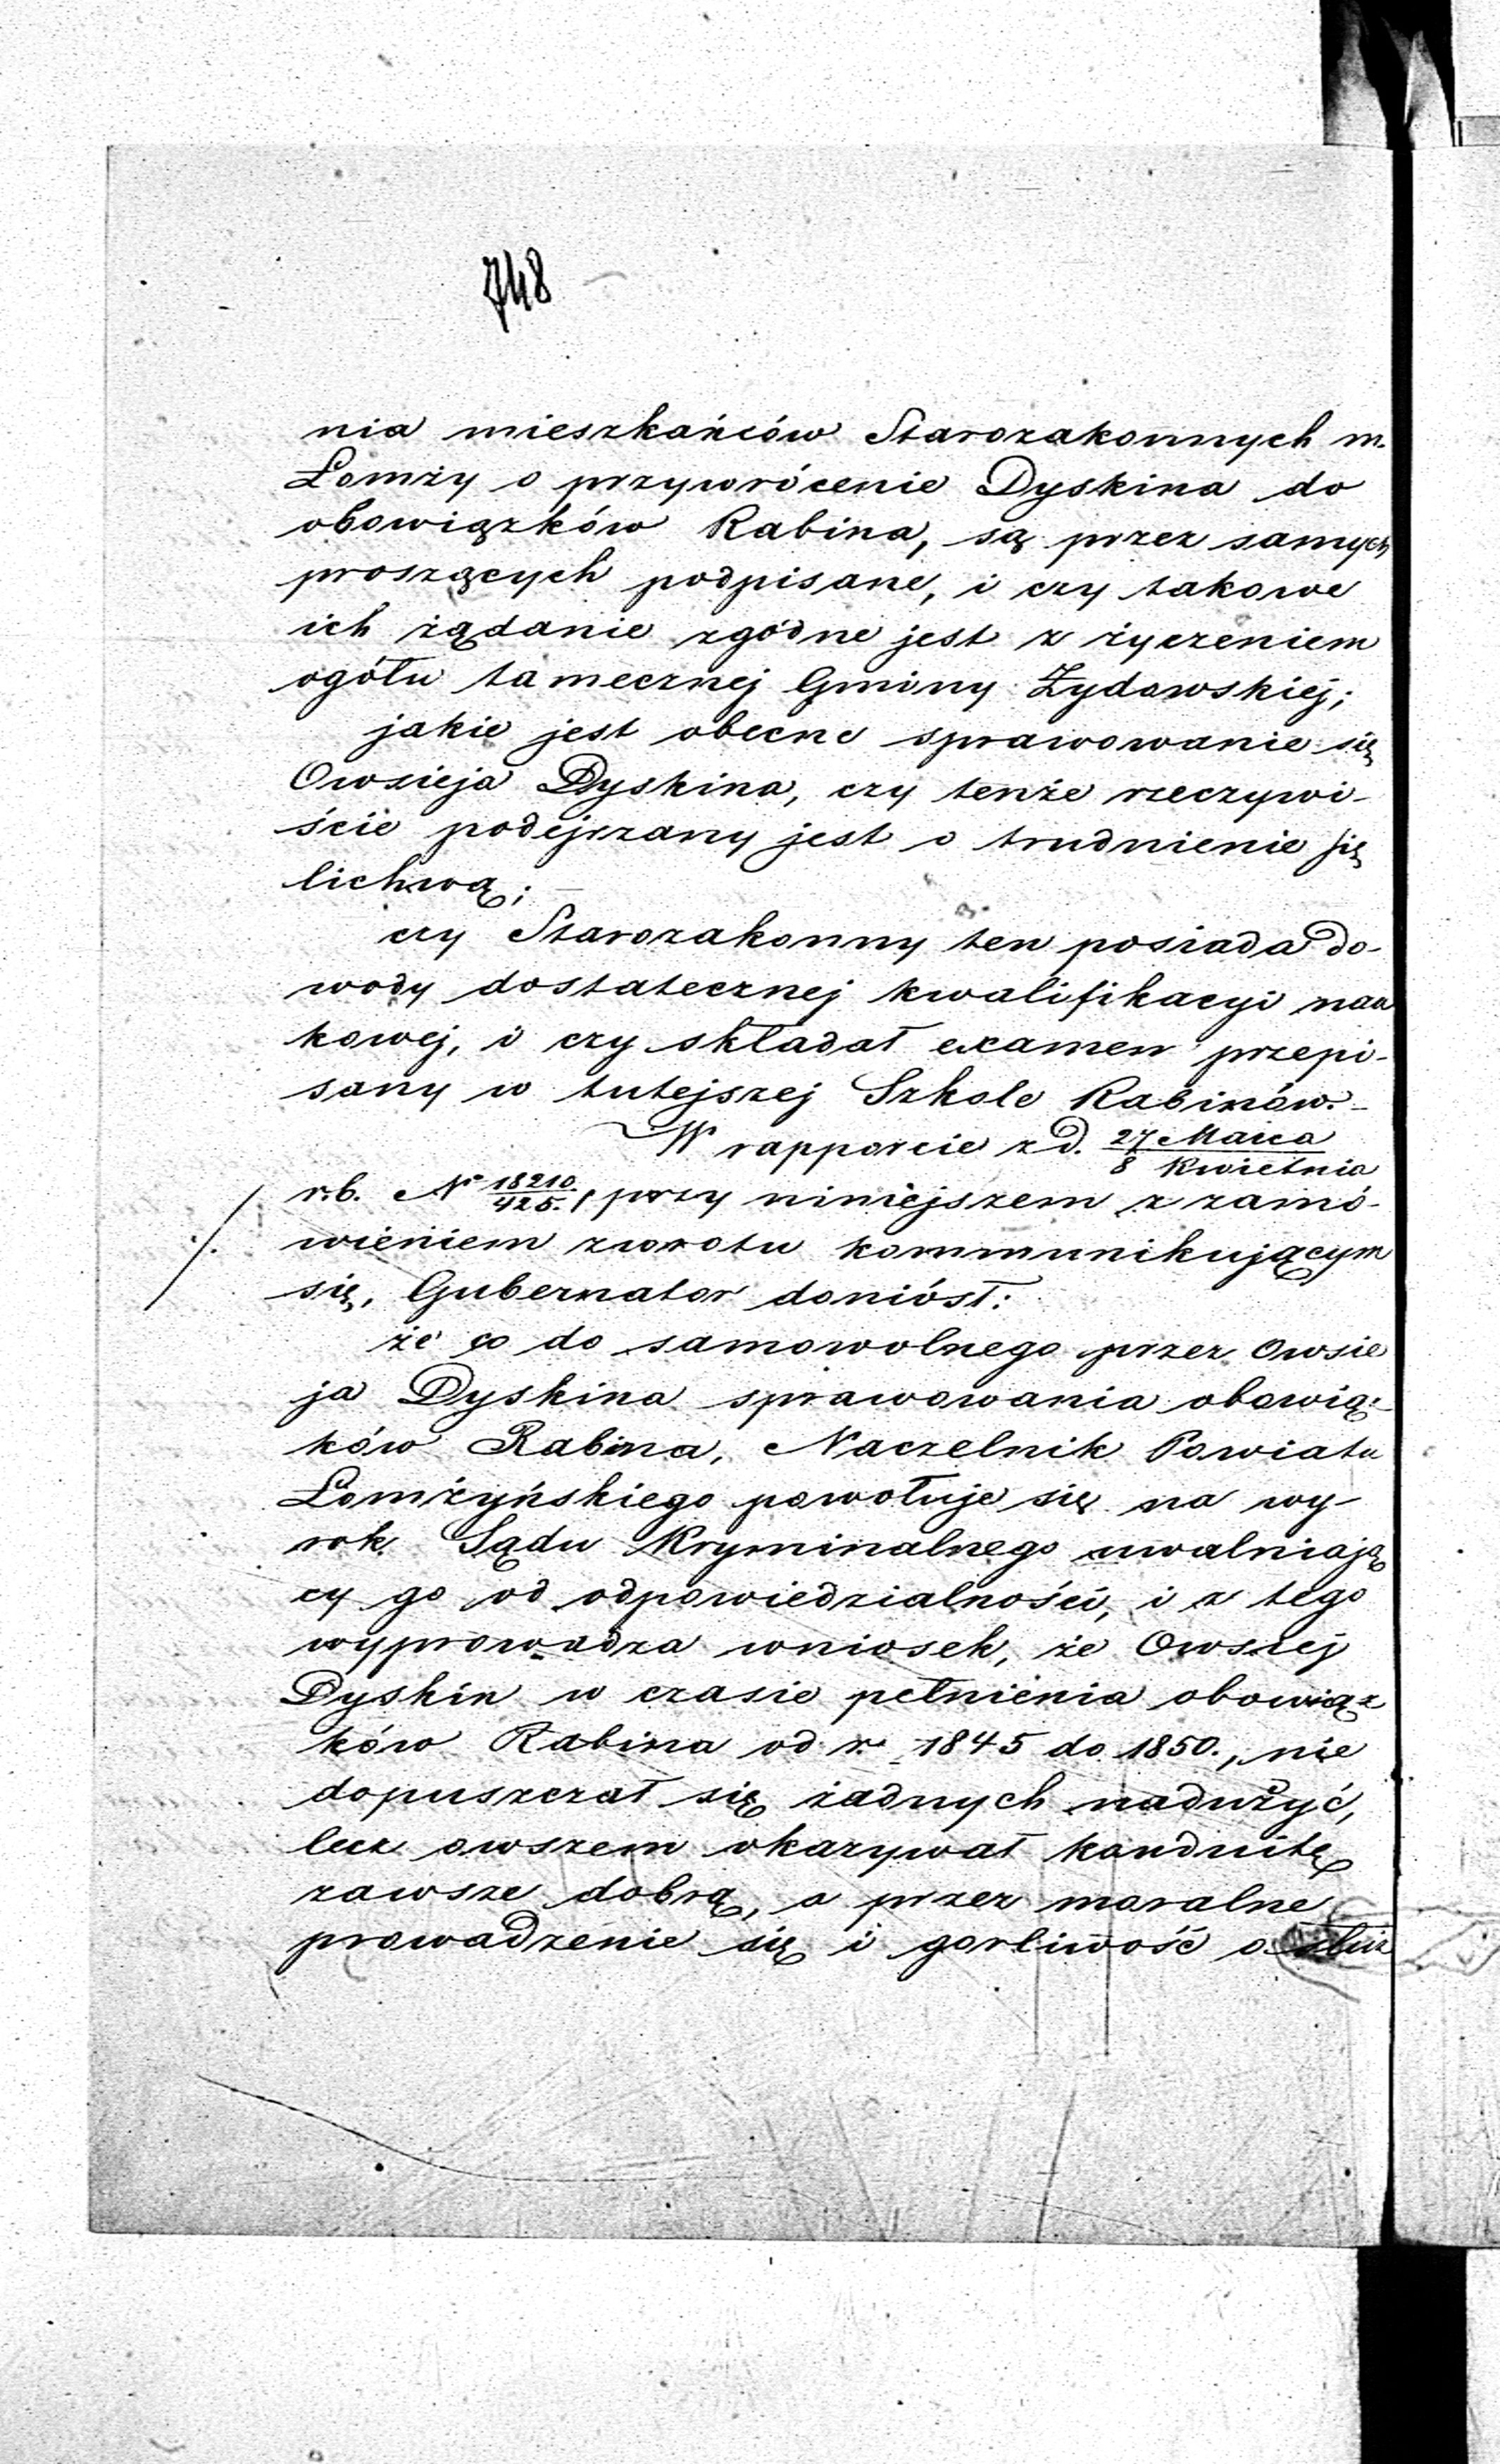 748
nia mieszkańców Starozakonnych m.
Łomży o przywrócenie Dyskina do
obowiązków Rabina, są przez samych
proszących podpisane, i czy takowe
ich żądanie zgodne jest z życzeniem
ogółu tamecznej Gminy Żydowskiej;
jakie jest obecne sprawowanie się
Owsieja Dyskina, czy tenże rzeczywi-
ście podejrzany jest o trudnienie się
lichwą;
czy Starozakonny ten posiada do-
wody dostatecznej kwalifikacyi nau
kowej, i czy składał examen przepi-
sany w tutejszej Szkole Rabinów.-
W rapporcie z d. 27 Marca
8 Kwietnia
r.b. No 18210/425. przy niniejszem z zamó-
./.
wieniem zwrotu kommunikującym
się, Gubernator doniósł:
że co do samowolnego przez Owsie
ja Dyskina sprawowania obowią-
ków Rabina, Naczelnik Powiatu
Łomżyńskiego powołuje się na wy-
rok Sądu Kryminalnego uwalniają
cy go od odpowiedzialności, i z tego
wyprowadza wniosek, że Owsiej
Dyskin w czasie pełnienia obowiąz
ków Rabina od r. 1845 do 1850., nie
dopuszczał się żadnych nadużyć,
lecz owszem okazywał konduitę
zawsze dobrą, a przez moralne
prowadzenie się i gorliwość o służ